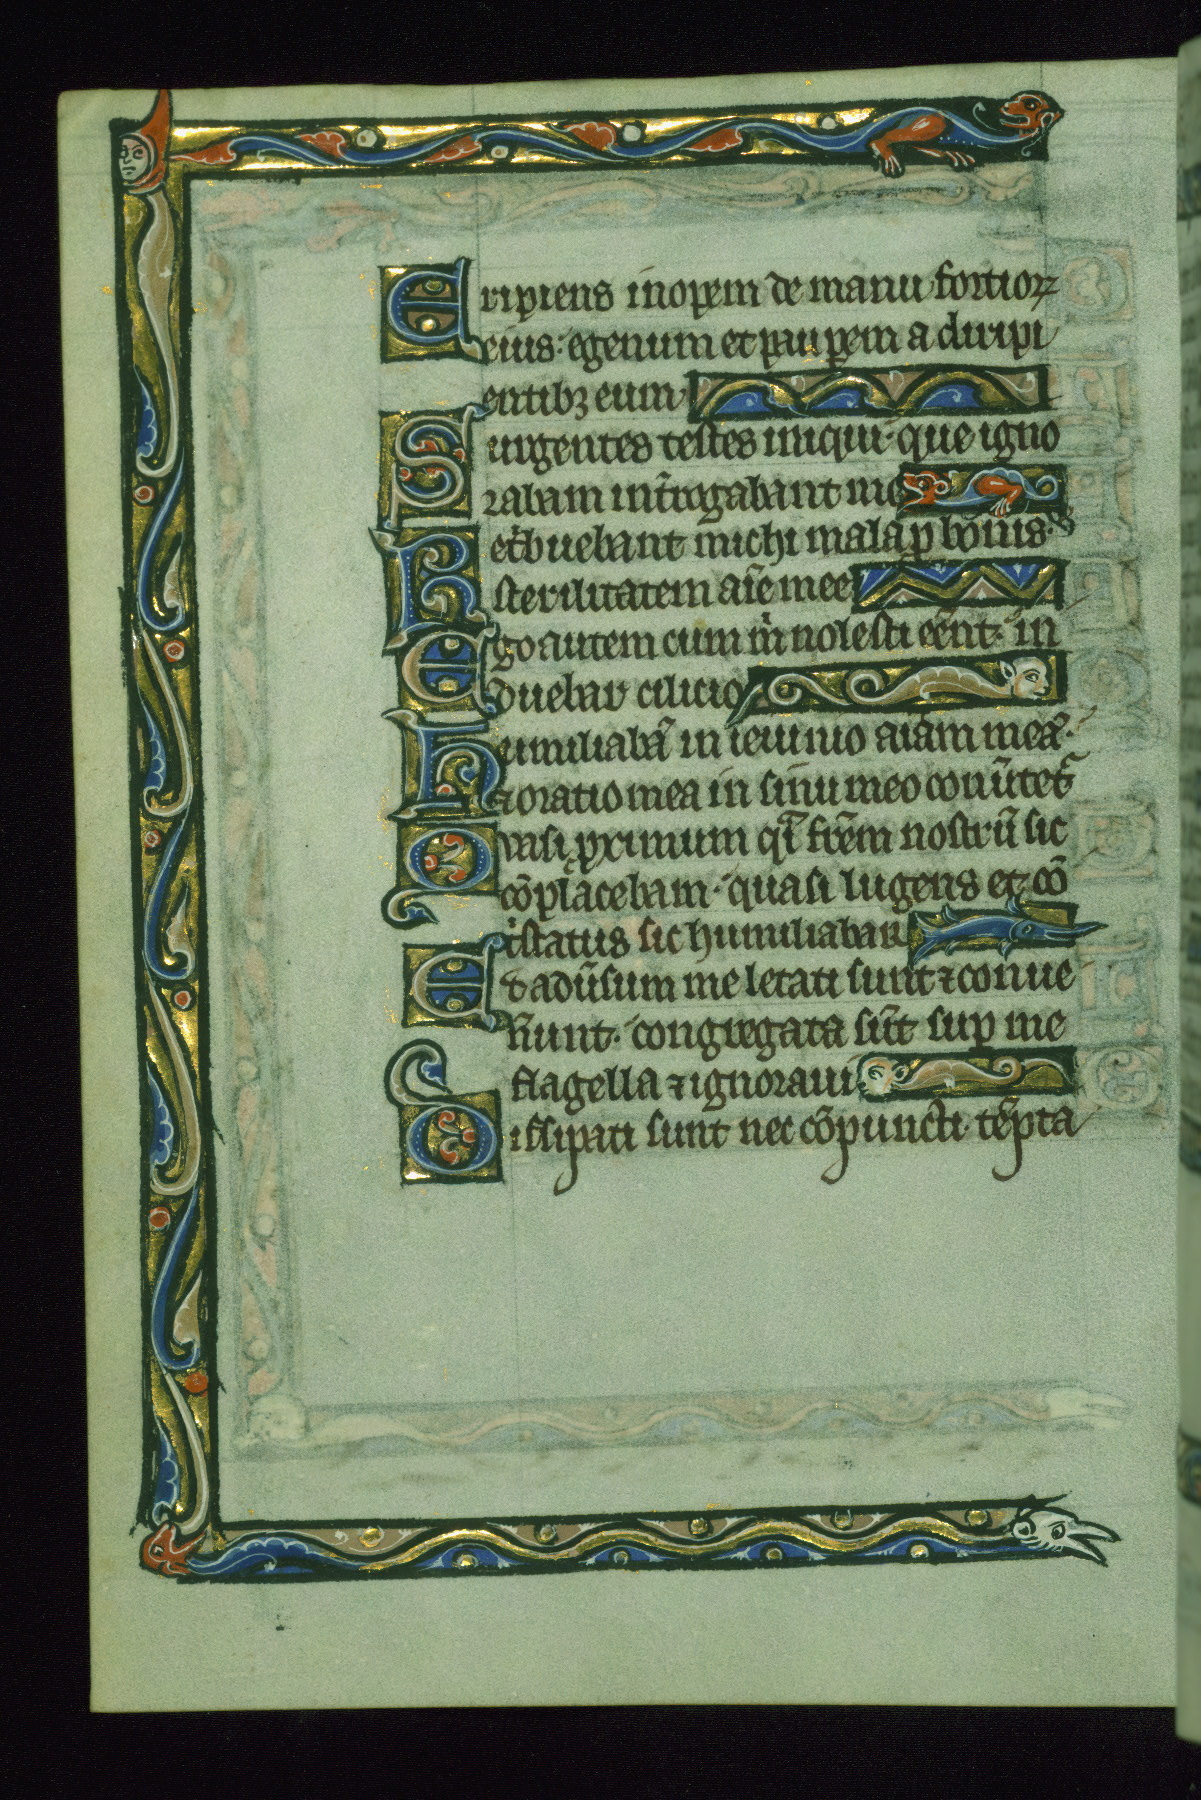 Eripiens inopem de manu fortioꝝ
eius: egenum et paupem a diripi
entibꝫ eum
Surgentes testes iniqui· que igno
rabam int̄rogabant me
Retͥbuebant michi mala p bonis·
sterilitatem aīe mee
Ego autem cum mͥ molesti eēnt· in
duebar cilicio
Humiliabā in ieiunio aīam meā·
⁊ oratio mea in sinu meo conūtet᷑
Quasi ꝓximum qͣ̄ı fr̄em nostrū sic
cōplacebam· quasi lugens et cō
tͥstatus sic humiliabar
Et adūsum me letati sunt ⁊ conue
n̄unt· congregata sūt sup me
flagella ⁊ ignoraui
Dissipati sunt nec cōpuncti· tēpta